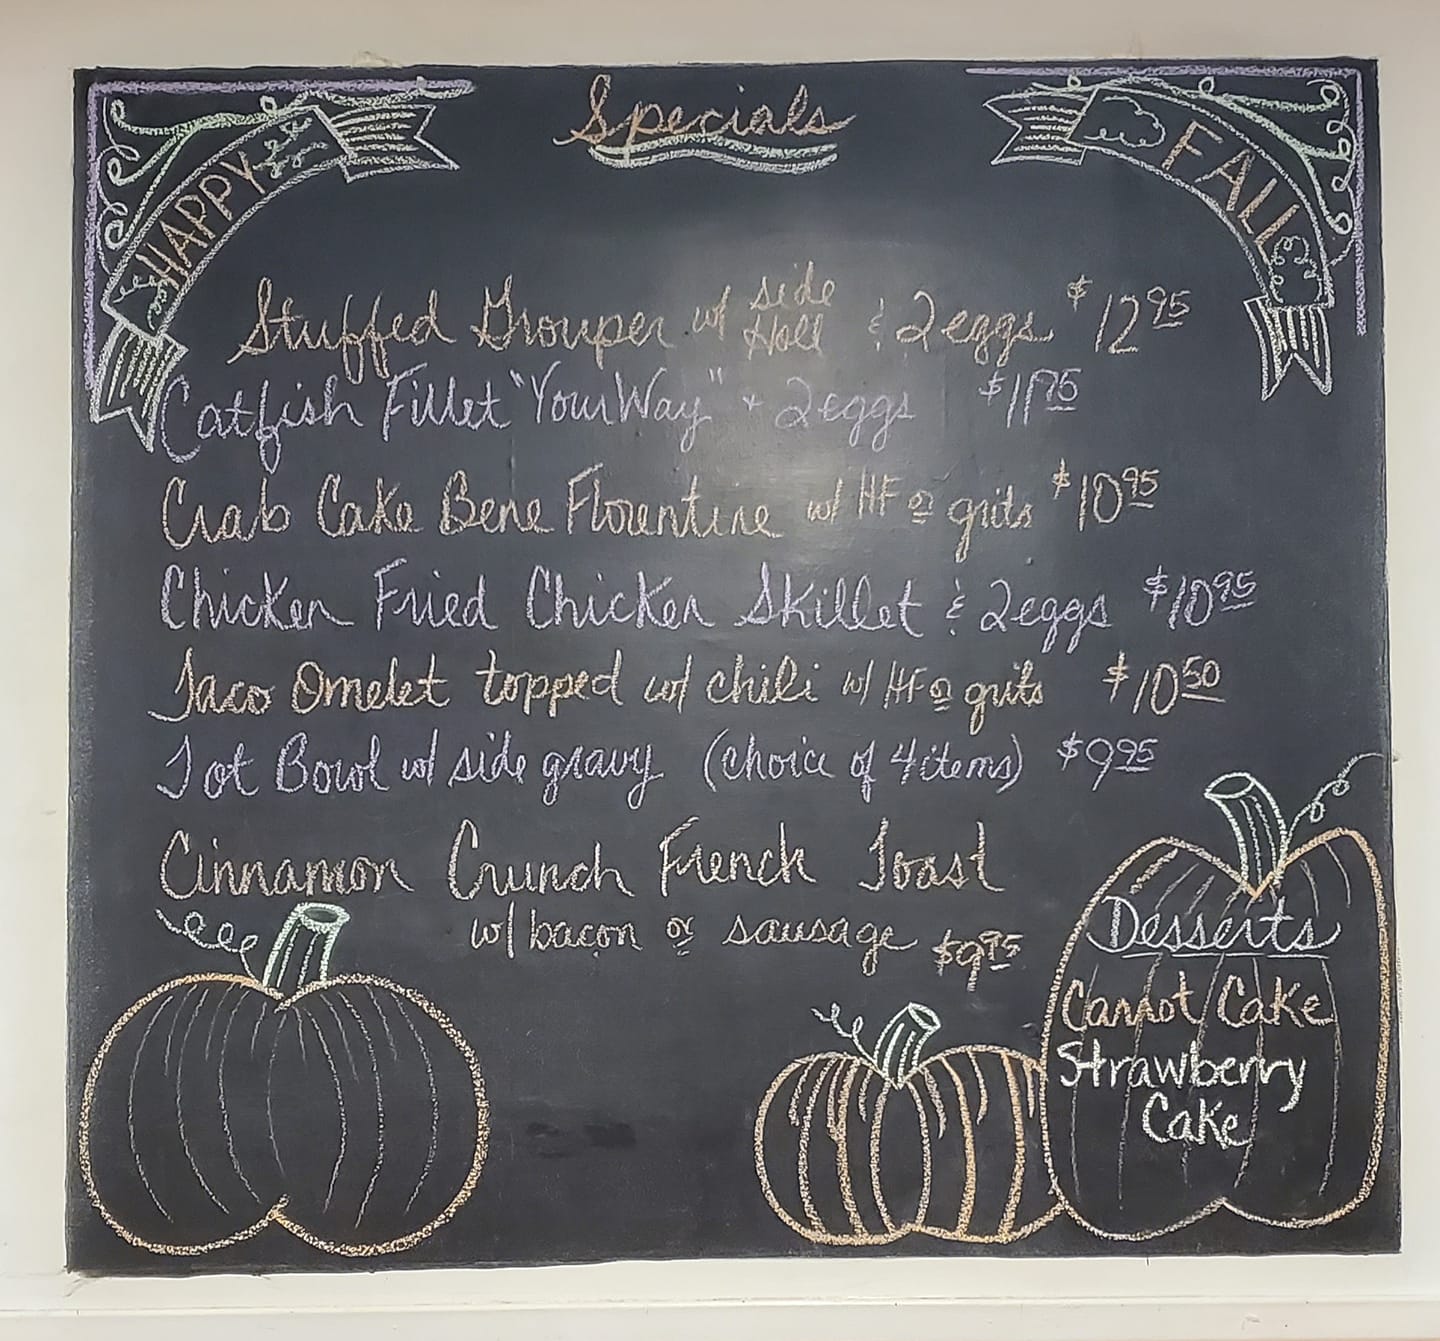 HAPPY
Specials
FALL
Stuffed Grouper w/ side Holl & 2eggs $12.95
Catfish Fillet "Your Way" + 2eggs $11.75
Crab Cake Bene Florentine w/ HF or grits $10.95
Chicken Fried Chicken Skillet & 2eggs $10.95
Taco Omelet topped w/ chili w/ HF or grits $10.50
Tot Bowl w/ side gravy (choice of 4 items) $9.95
Cinnamon Crunch French Toast
w/ bacon or sausage $9.75
Desserts
Carrot Cake
Strawberry
Cake